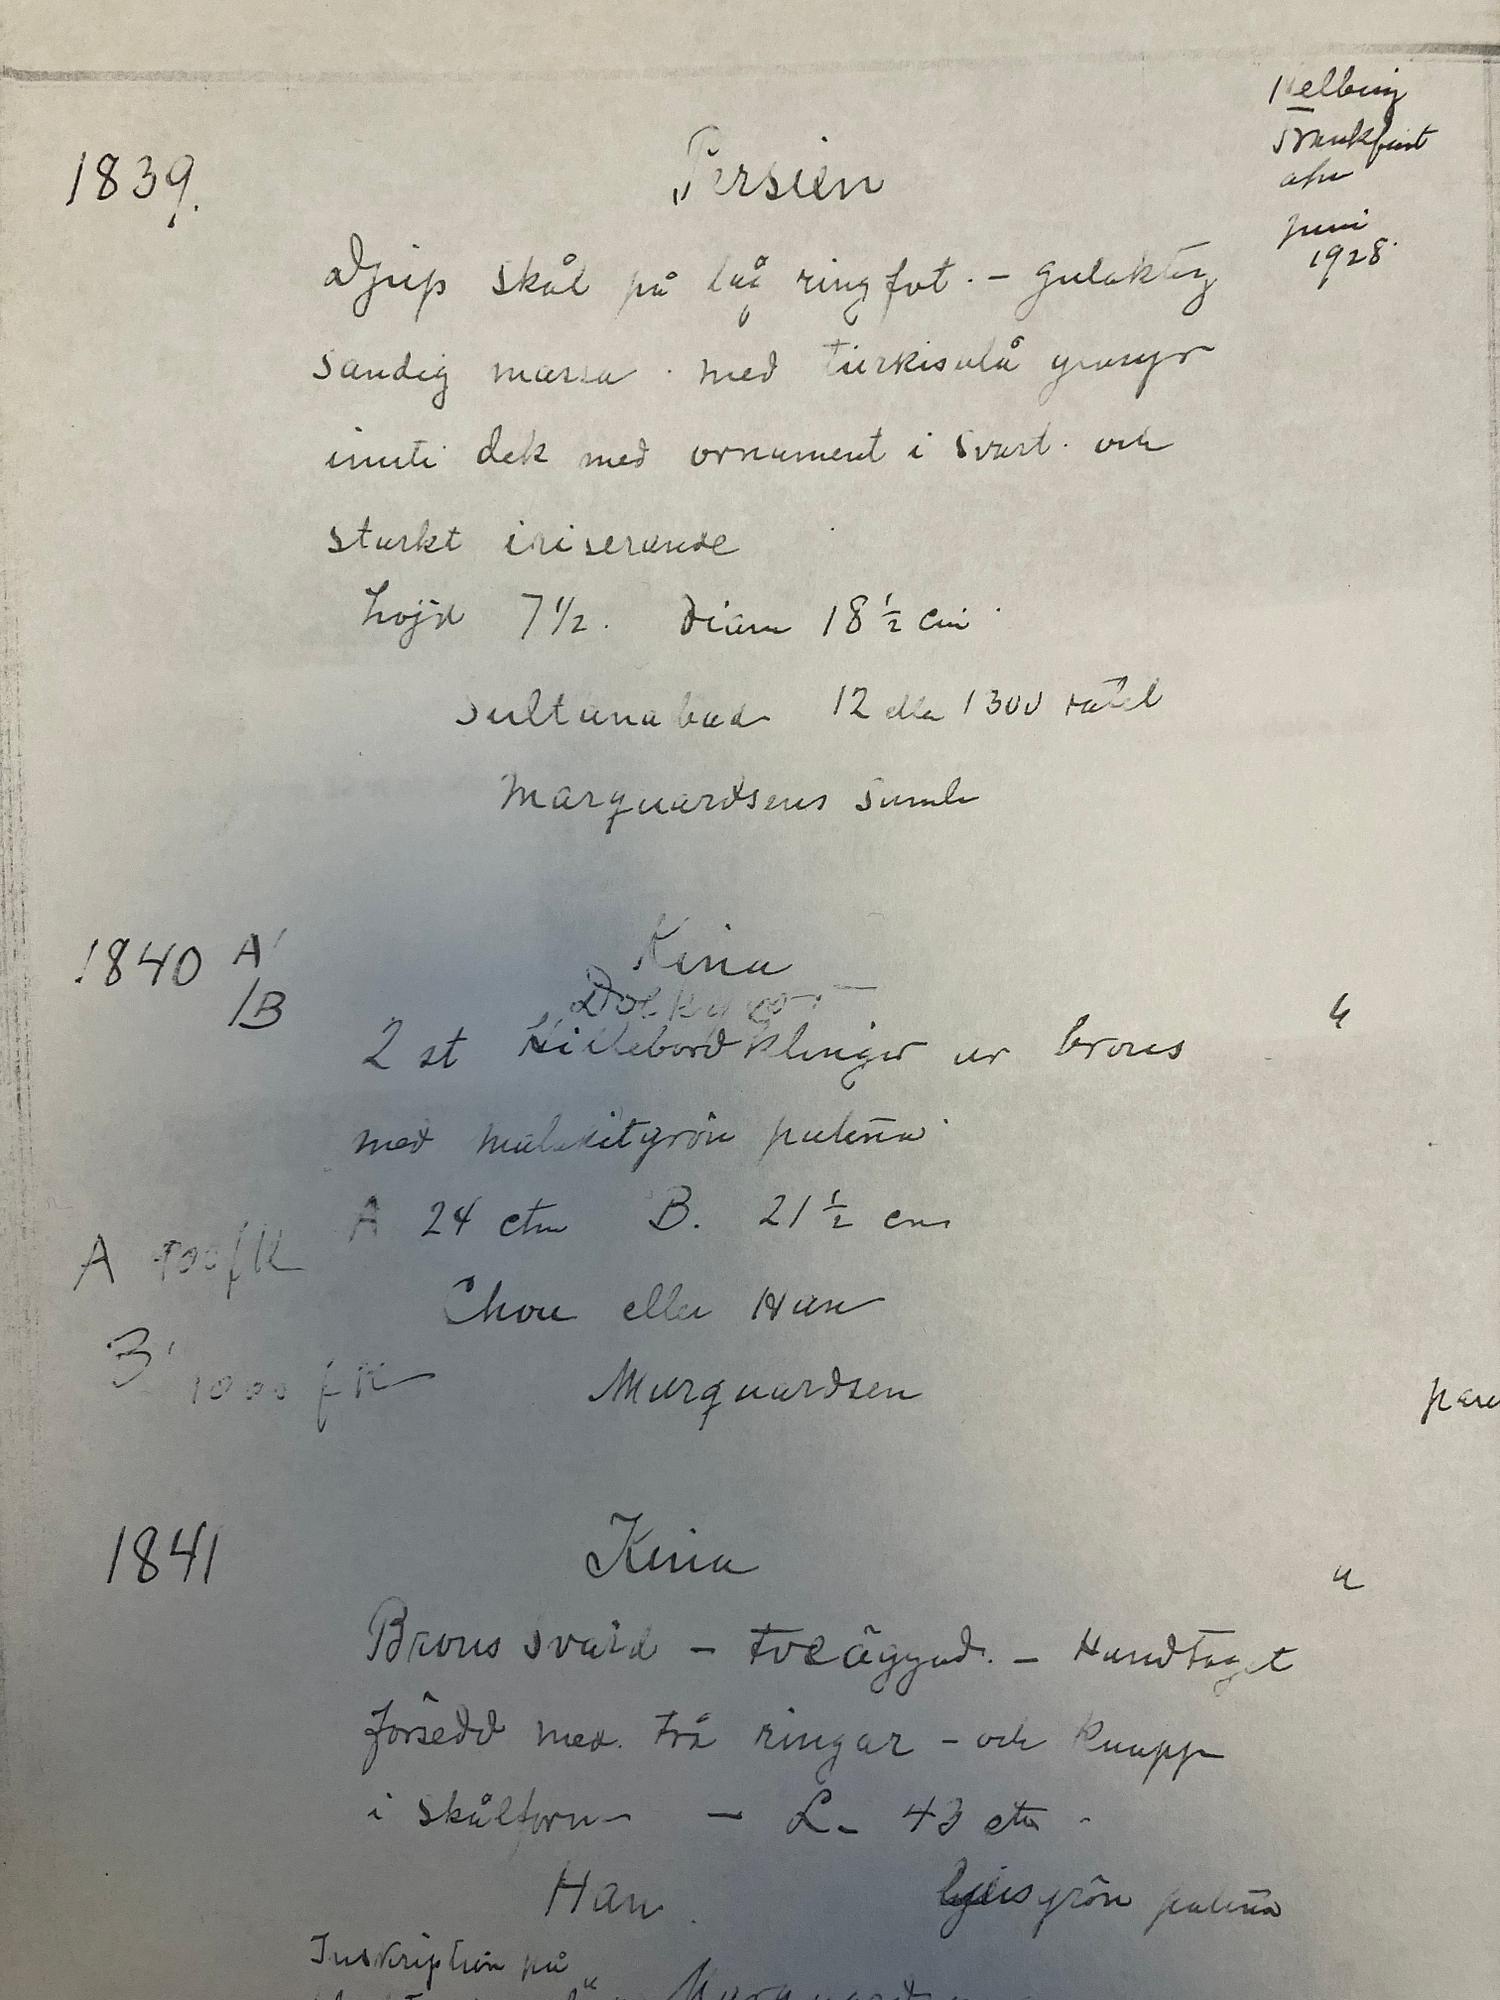 Helbing
Frankfurt
a/m
juni
1928.
1839.
Persien
Djup skål på låg ringfot. – Gulaktig
sandig massa med turkisblå glasyr
inuti dek med ornament i svart och
starkt iriserande
höjd 7 1/2. Diam 18 1/2 cm
Sultanabad 12 eller 1300 talet
Marquardsens Samli
1840 A
/B
Kina
2 st Hillebardklingor ur brons "
med malakitgrön patina
A 24 ctm B. 21 1/2 cm
A
Chou eller Han
B 1000
Marquardsen
1841
Kina
"
Brons svärd – tveäggad. – Handtaget
försedd med två ringar – och knapp
i skålform – L. 43 ctm
Han. ljusgrön patina
Inskription på